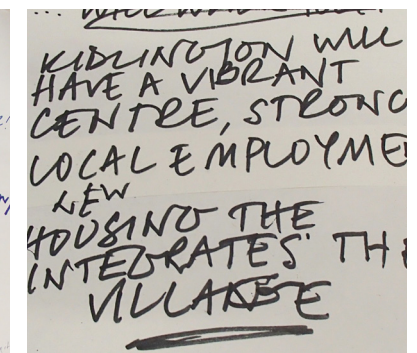 KIDLINGTON WILL
HAVE A VIBRANT
CENTRE, STRONG
LOCAL EMPLOYME
NEW
HOUSING THE
INTEGRATES TH
VILLAGE